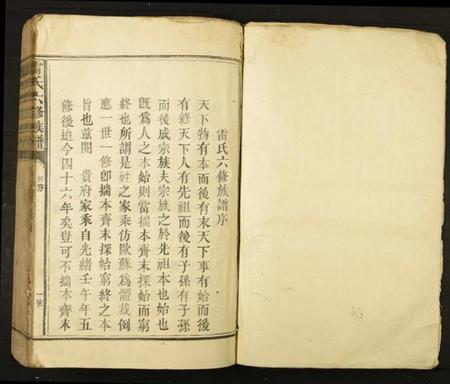 雷氏六修族譜序
天下物有本而後有末天下事有始而後
有終天下人有先祖而後有子孫有子孫
而後成宗族夫宗族之於先祖本也始也
既爲人之本始則當揣本齊末探始而窮
終也所謂是姓之家乘仿歐蘇爲體裁例
應一世一修卽揣本齊末探始窮終之本
旨也茲閱 貴府家乘自光緒壬午年五
修後迄今四十六年矣豈可不揣本齊末
雷氏六修族譜